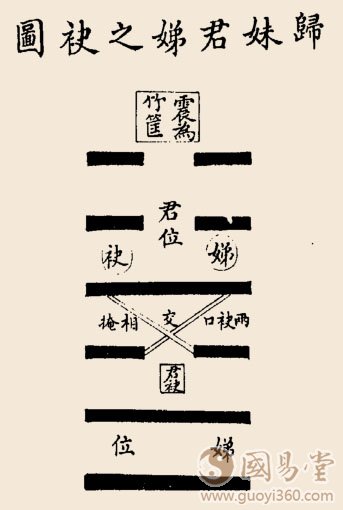 歸妹君娣之袂圖
震為
竹筐
君位
娣
袂
兩袂口交相掩
君袂
娣位
國易堂
www.guoyi360.com